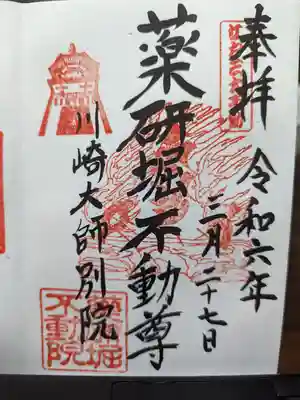 奉拝
令和六年
三月二十七日
薬研堀不動尊
川崎大師別院
薬研堀
不動院